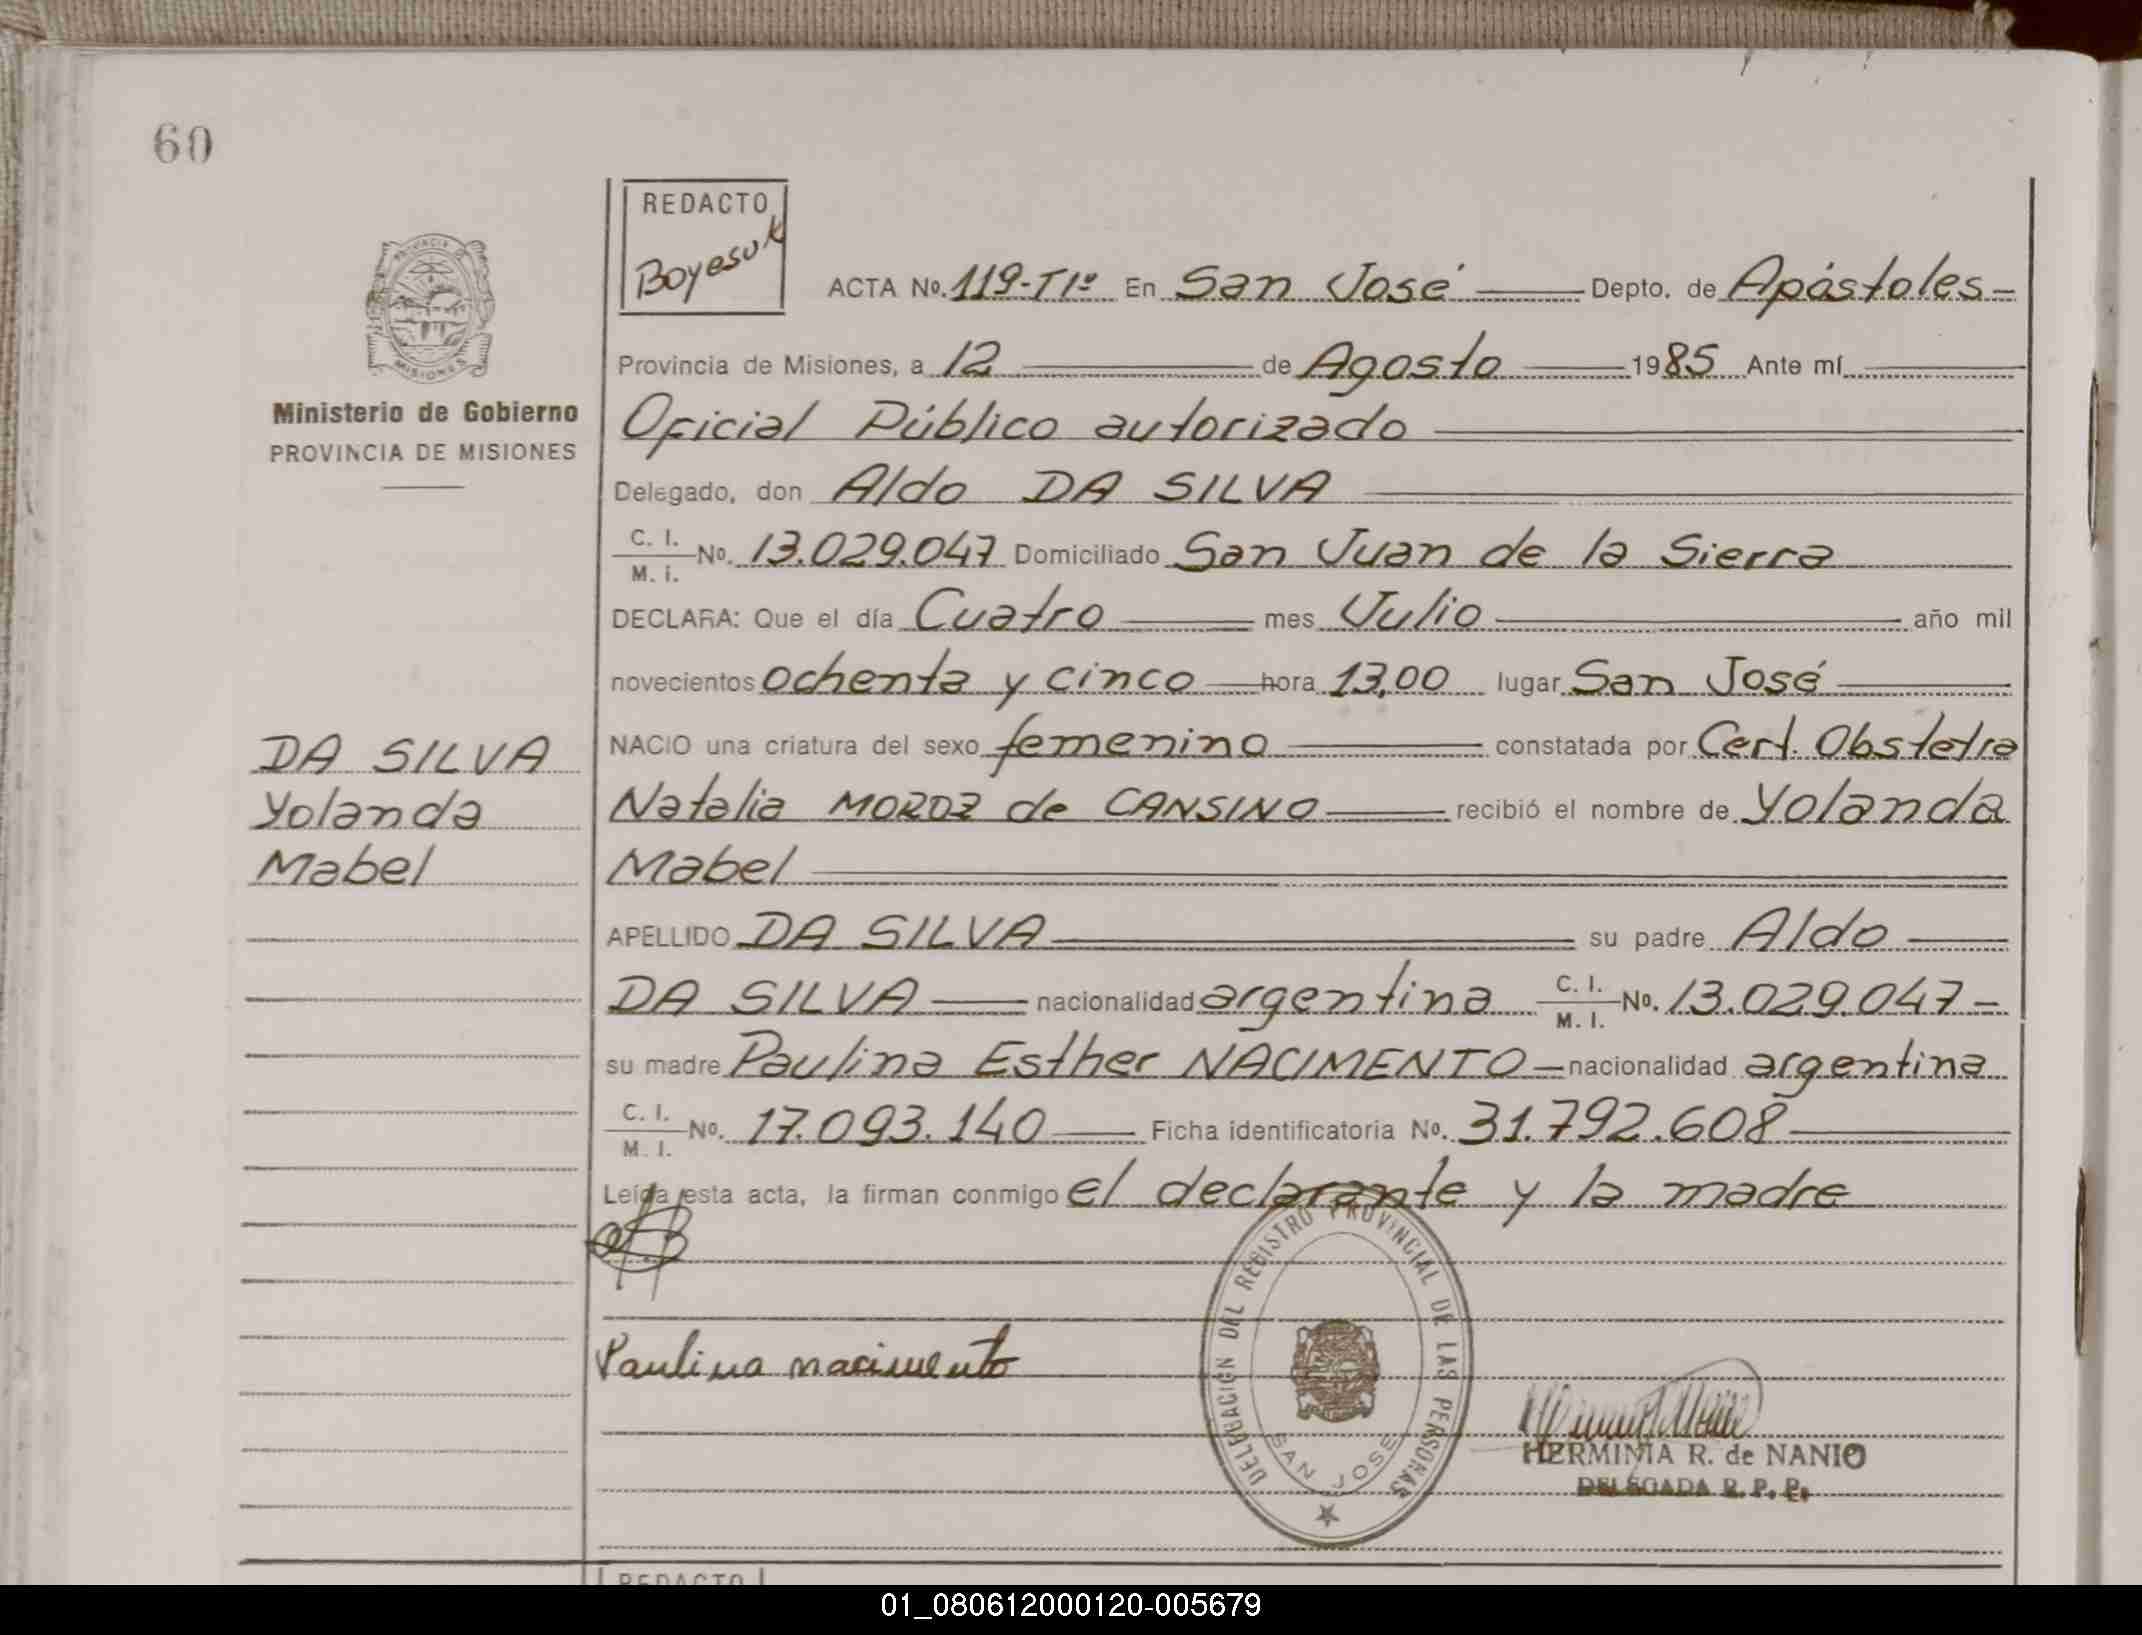 60
REDACTO
Boyesuk
PROVINCIA DE
MISIONES
Ministerio de Gobierno
PROVINCIA DE MISIONES
ACTA No. 119-TIº En San José Depto. de Apóstoles
Provincia de Misiones, a 12 de Agosto 1985 Ante mí
Oficial Público autorizado
Delegado, don Aldo DA SILVA
C. I. / M. i. No. 13.029.047 Domiciliado San Juan de la Sierra
DECLARA: Que el día Cuatro mes Julio año mil
novecientos ochenta y cinco hora 13,00 lugar San José
NACIO una criatura del sexo femenino constatada por Cert. Obstetra
Natalia MOROZ de CANSINO recibió el nombre de Yolanda
Mabel
DA SILVA
Yolanda
Mabel
APELLIDO DA SILVA su padre Aldo
DA SILVA nacionalidad argentina C. I. / M. I. No. 13.029.047
su madre Paulina Esther NACIMENTO nacionalidad argentina
C. I. / M. I. No. 17.093.140 Ficha identificatoria No. 31.792.608
Leída esta acta, la firman conmigo el declarante y la madre
Paulina nacimento
DELEGACIÓN DEL REGISTRO PROVINCIAL DE LAS PERSONAS
SAN JOSE
HERMINIA R. de NANIO
DELEGADA R. P. P.
REDACTO
01_080612000120-005679